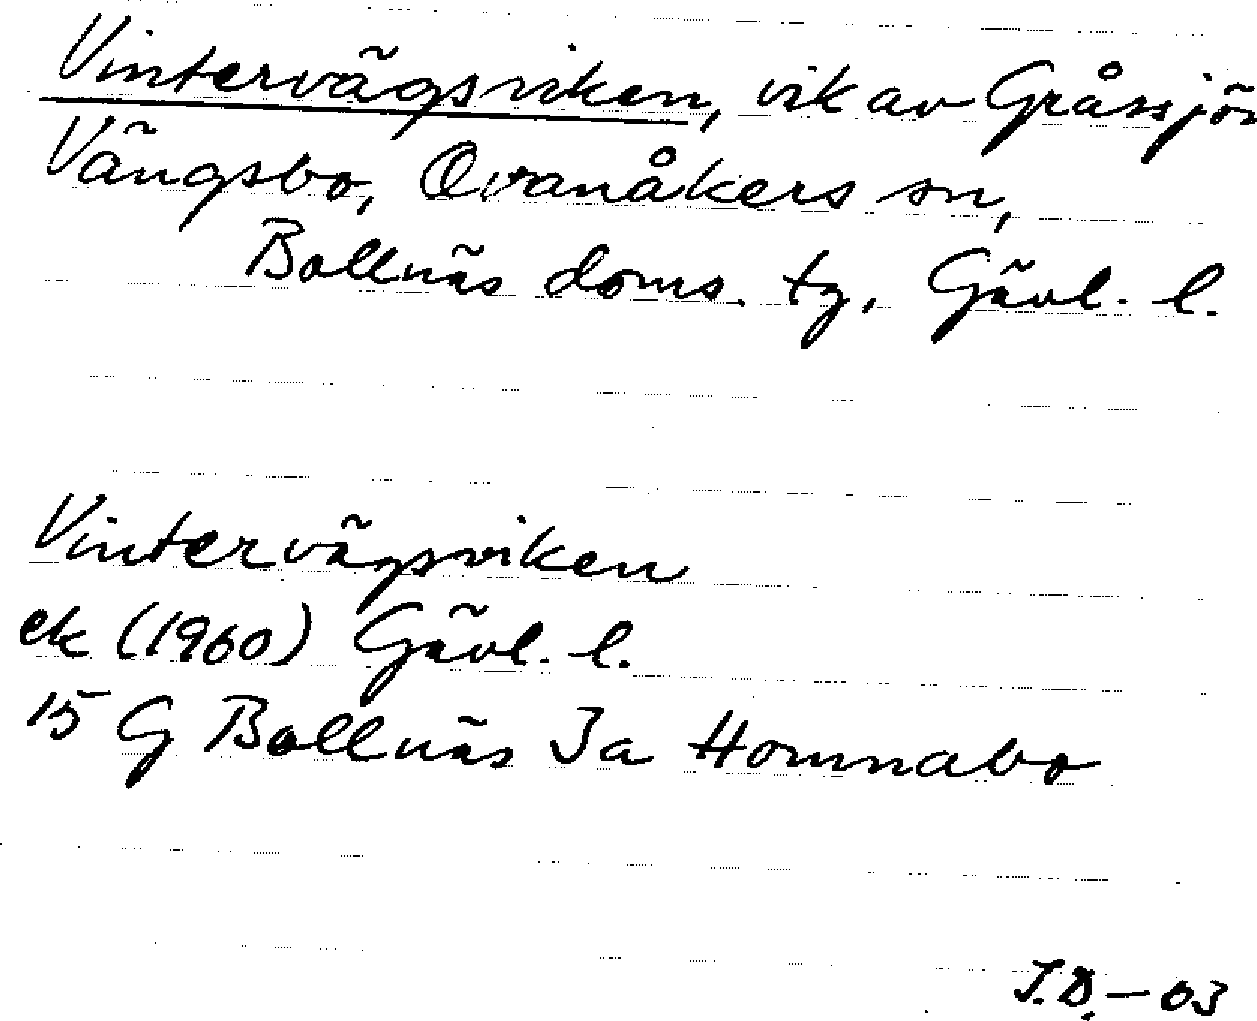 Vintervägsviken, vik av Gråssjön
Vängsbo, Ovanåkers sn,
Bollnäs doms. tg, Gävl. l.
Vintervägsviken
ek (1960) Gävl. l.
15 G Bollnäs Ja Homnabo
J.D. – 03